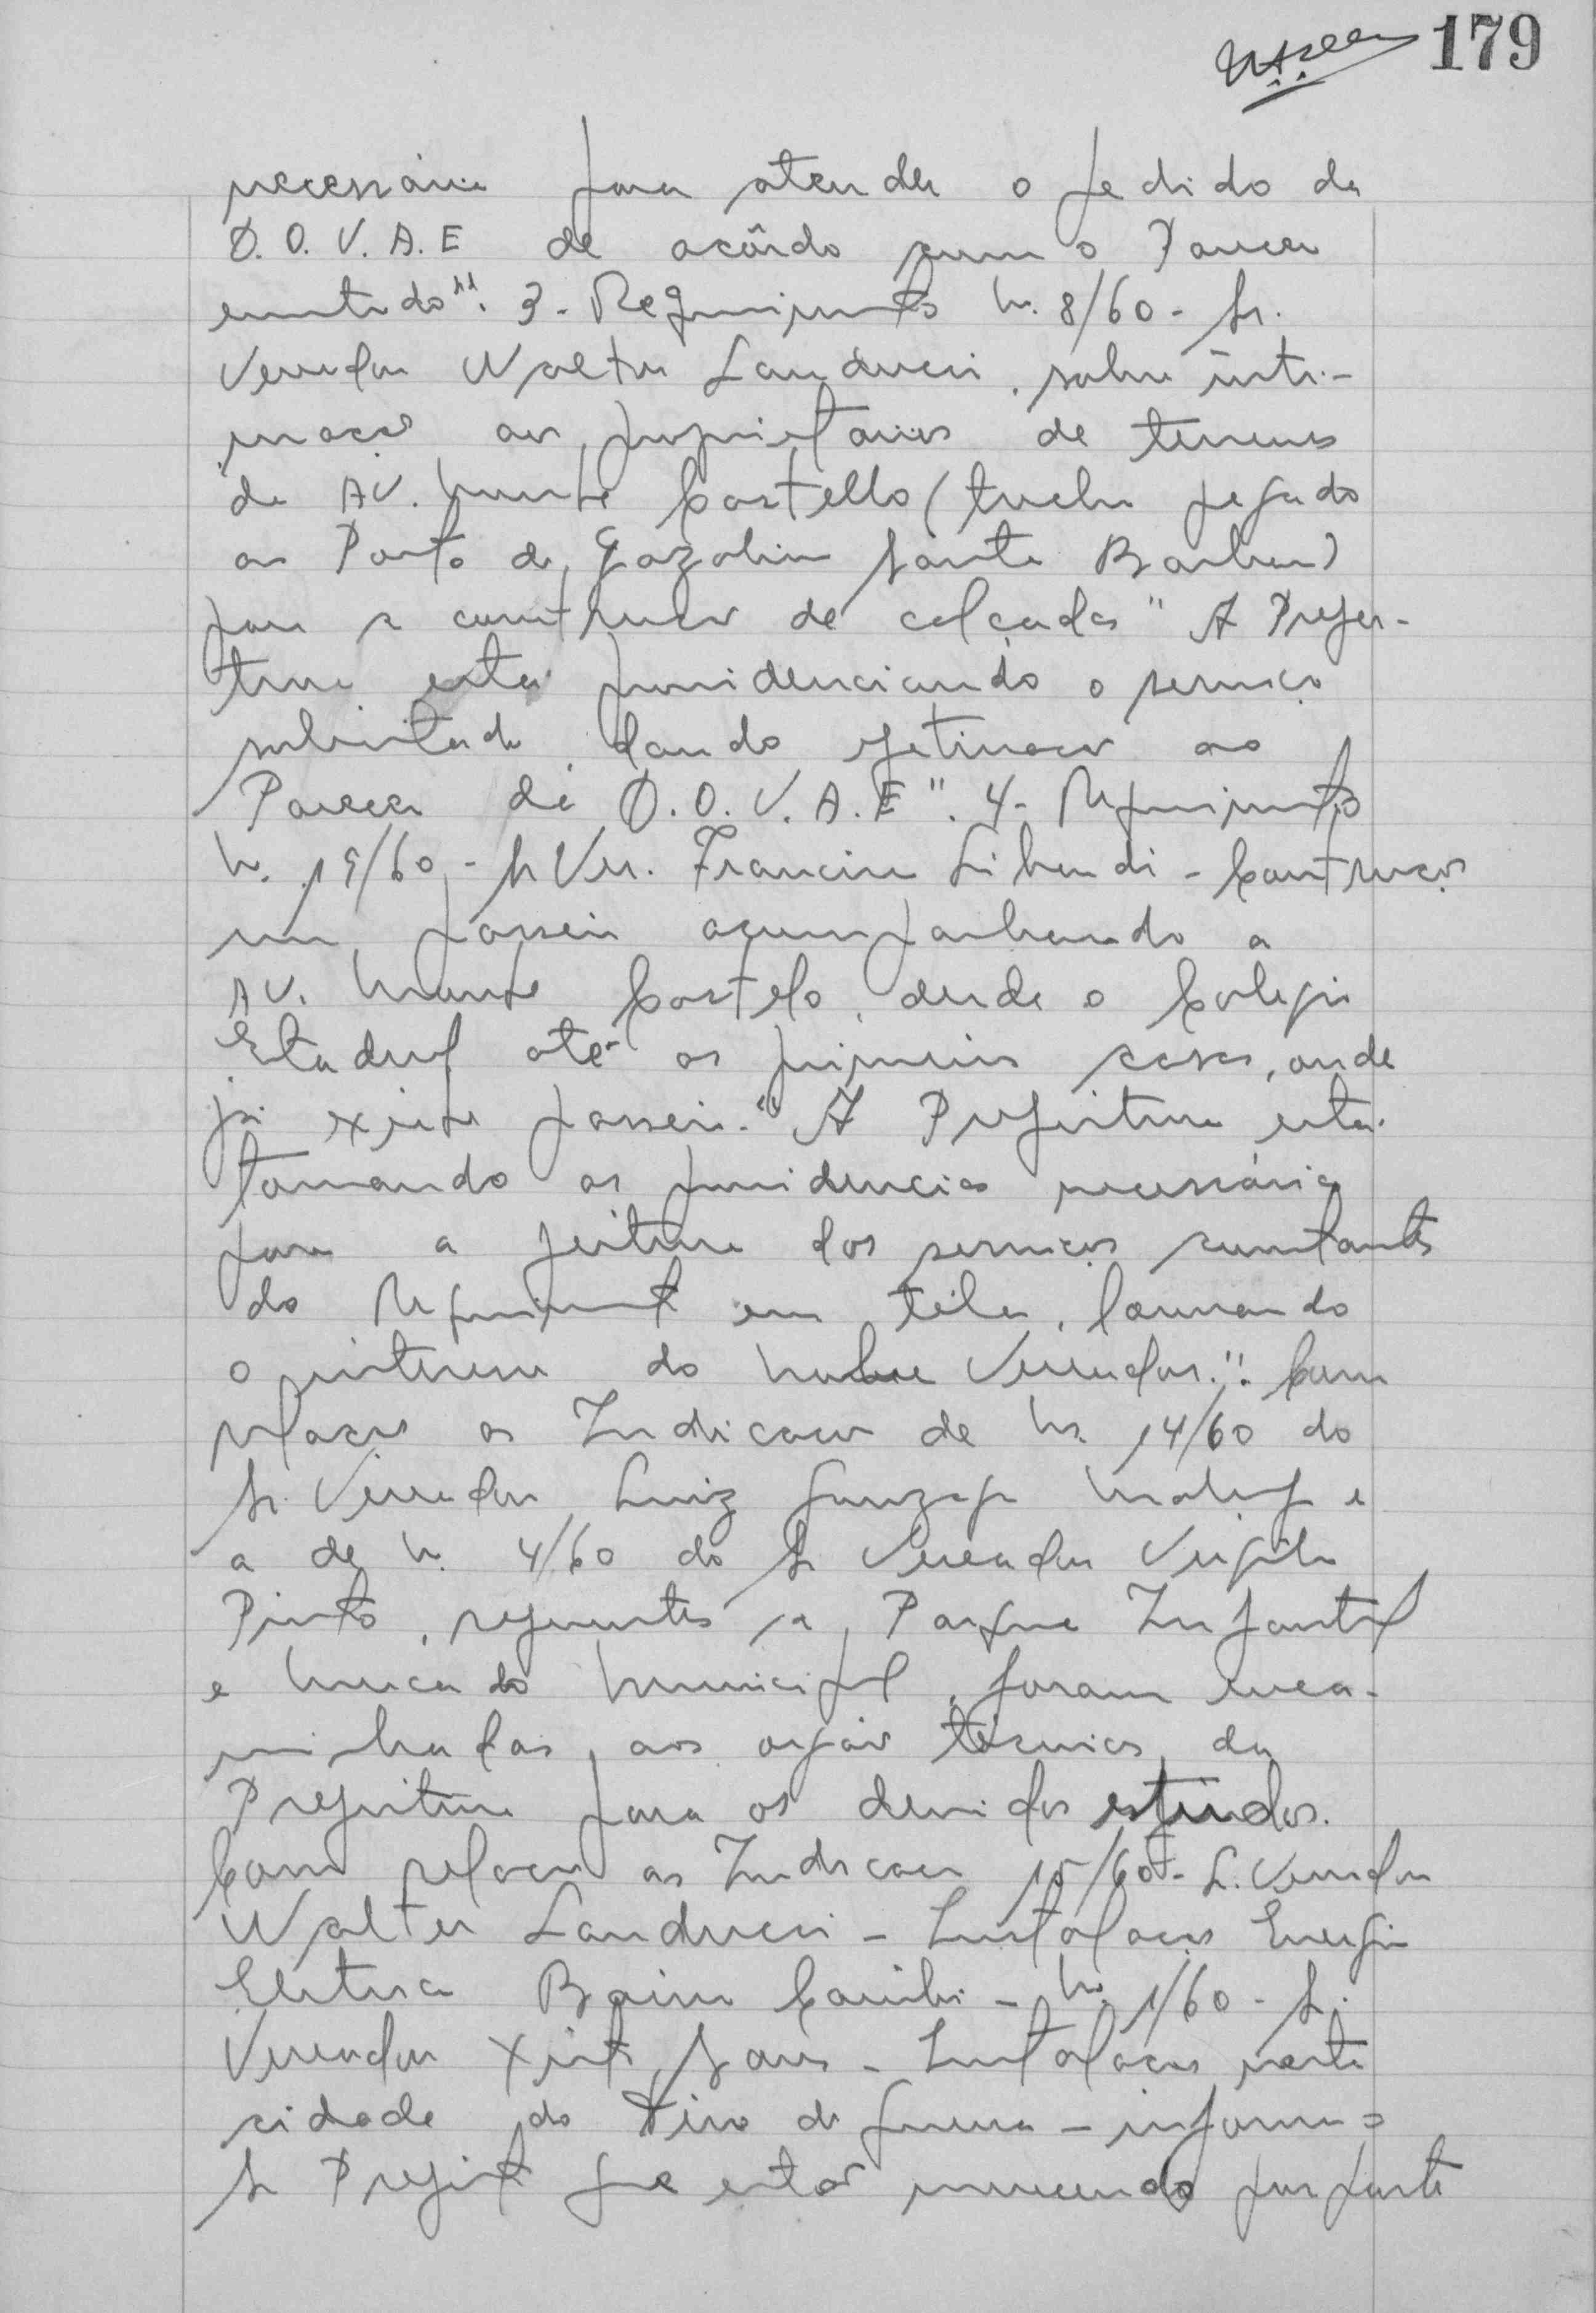 179
necessária para atender o pedido da
D.O.V.A.E de acôrdo com o Parecer
emitido". 3- Requerimento n. 8/60 - Sr.
Vereador Walter Landucci, sobre inti-
mação aos proprietarios de terrenos
da AV. Monte Castello (trecho pegado
ao Posto de Gazolina Santa Barbara)
para a construção de calçadas "A Prefei-
tura está providenciando o serviço
solicitado, dando efetivação ao
Parecer da D.O.V.A.E". 4- Requerimento
n. 19/60 - Sr Ver. Francisco Libardi - Construção
um passeio acompanhando a
AV. Monte Castelo, desde o Colegio
Estadual até as primeiras casas, onde
já existe passeio. "A Prefeitura está
tomando as providencias necessárias
para a feitura dos serviços constantes
do Requerimento em téla, louvando
o interesse do nobre Vereador". Com
relação as Indicações de ns. 14/60 do
Sr. Vereador Luiz Gonzaga e
a de n. 4/60 do Sr Vereador Virgilio
Pinto, referentes a Parque Infantil
e Mercado Municipal, foram enca-
minhadas, aos orgãos técnicos da
Prefeitura para os devidos estudos.
Com relação as Indicações 15/60 - S. Vereador
Walter Landucci - Instalação Energia
Eletrica Bairro - n. 1/60 - S.
Vereador Xisto - Instalação nesta
cidade do Tiro de Guerra - informa o
Sr Prefeito que estão merecendo por parte